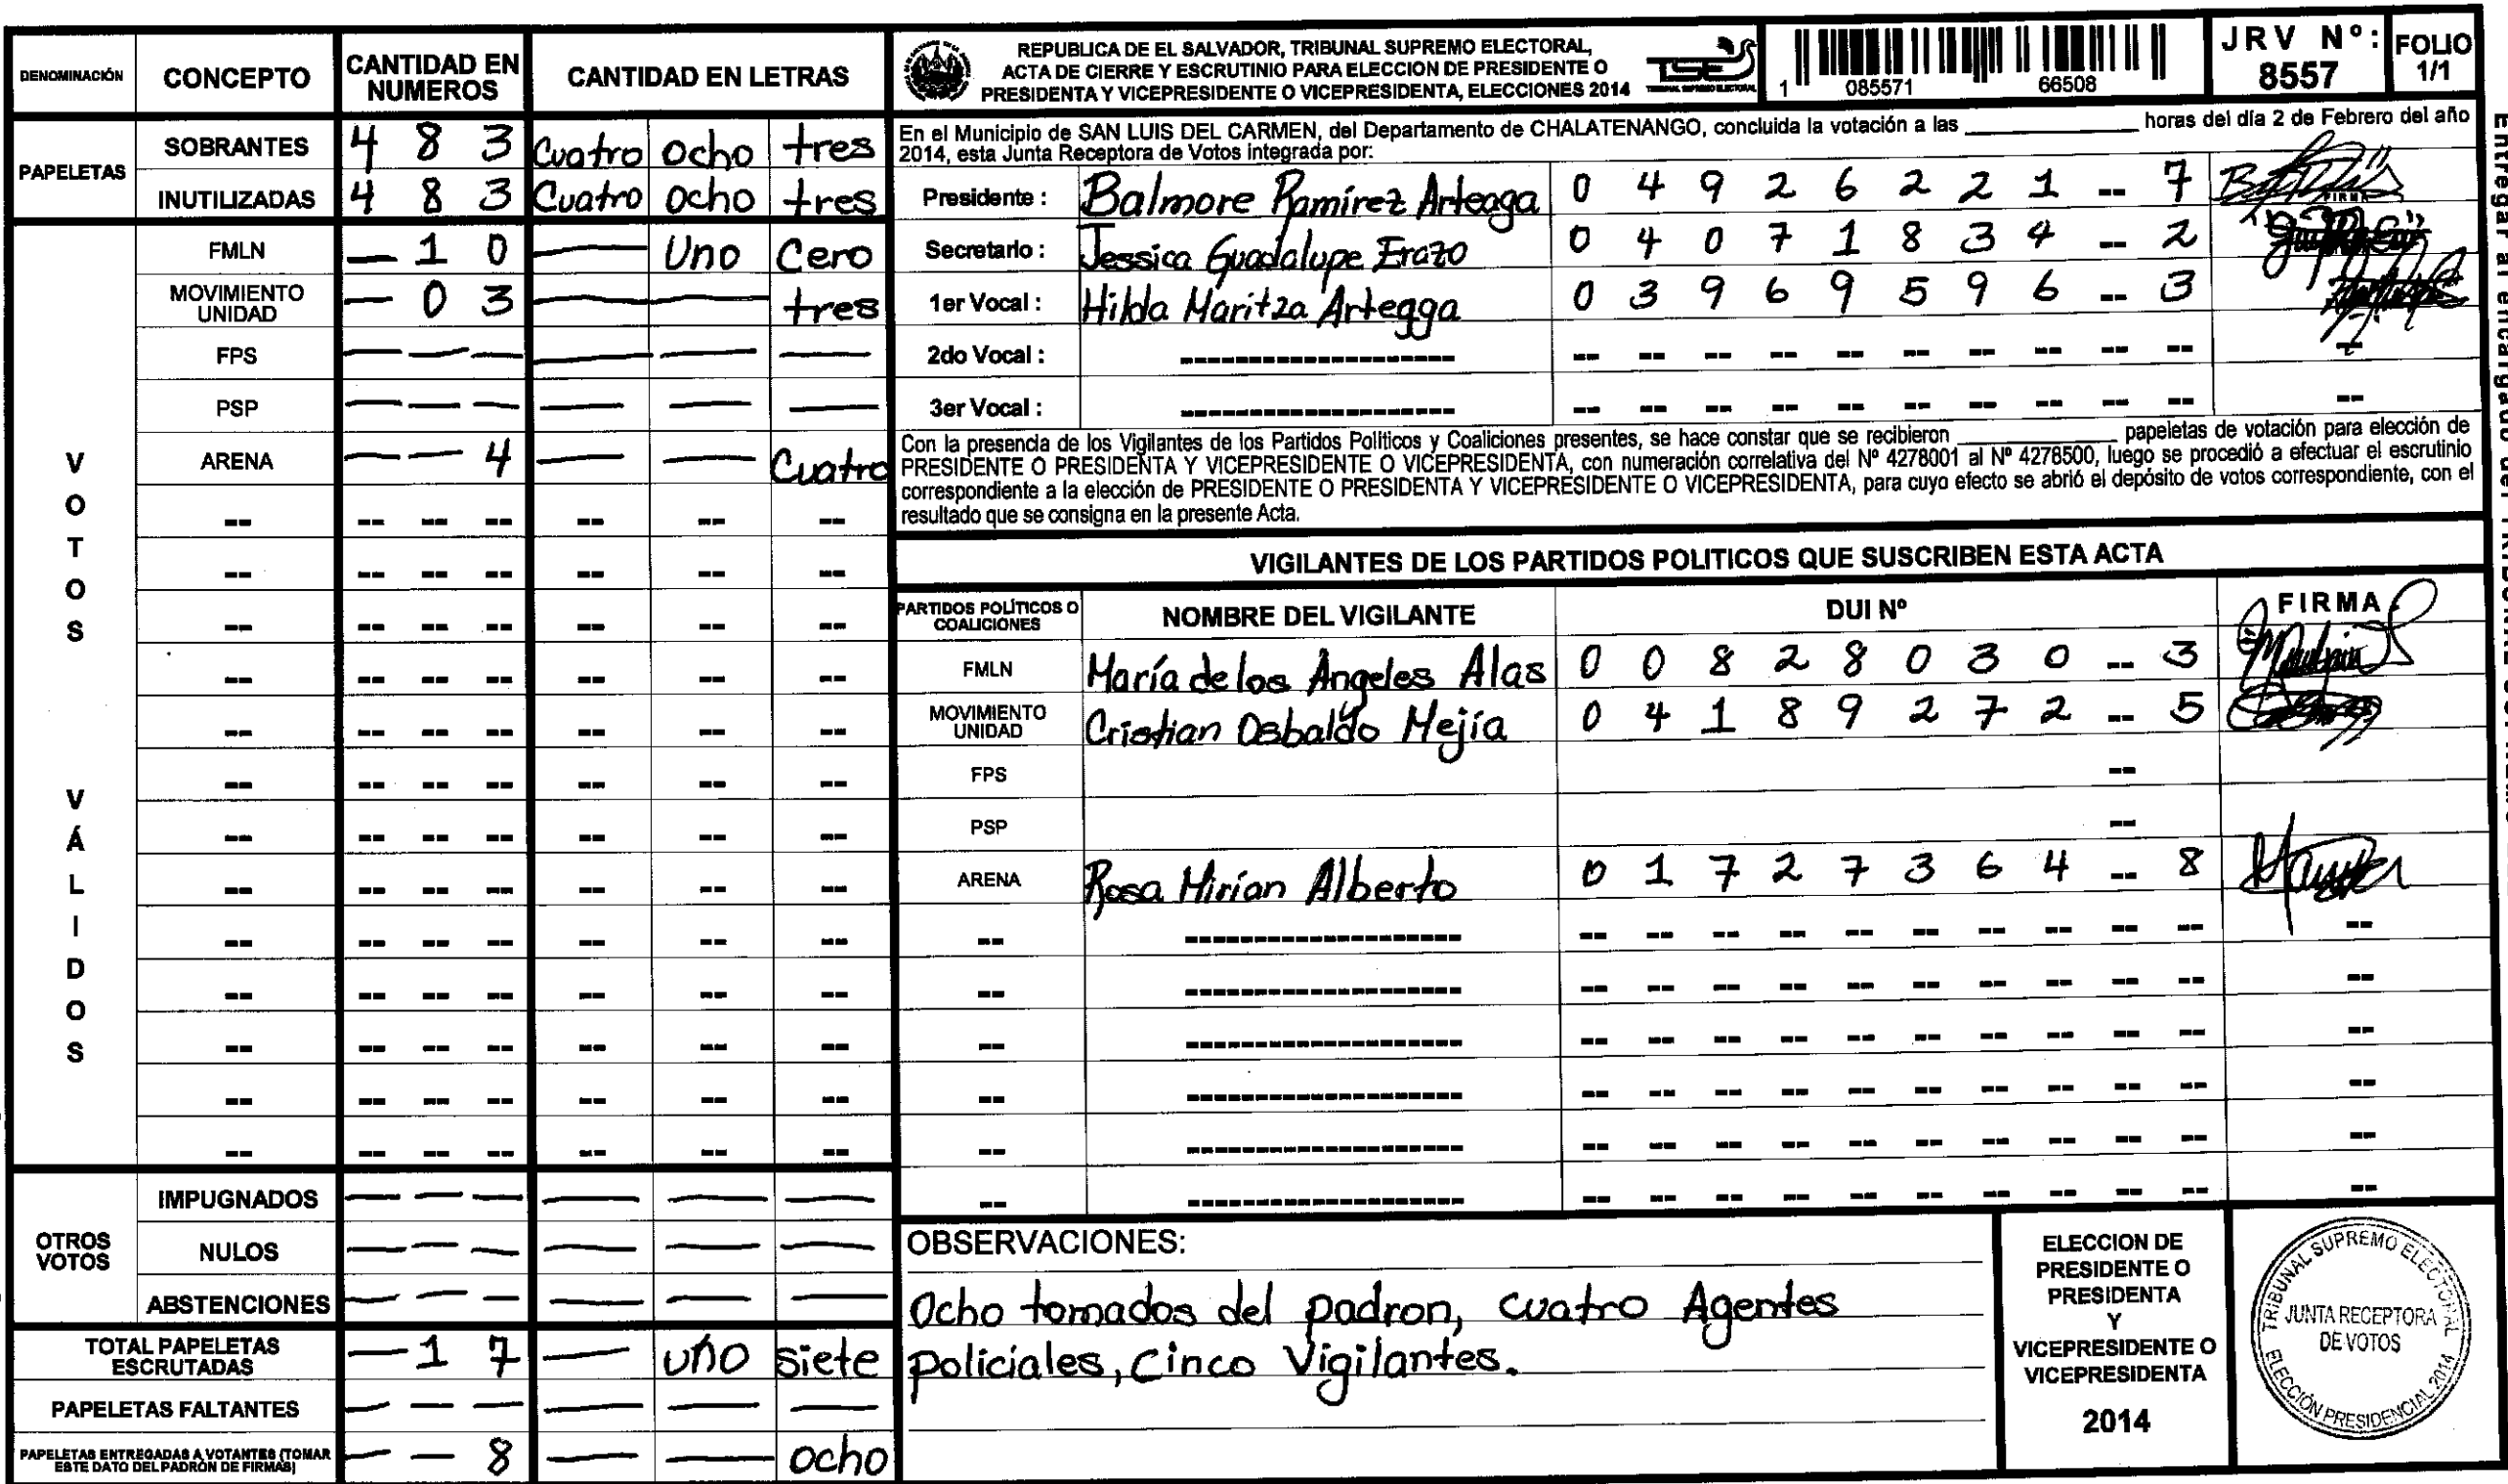 DENOMINACIÓN CONCEPTO CANTIDAD EN NUMEROS CANTIDAD EN LETRAS
PAPELETAS
SOBRANTES 4 8 3 Cuatro ocho tres
INUTILIZADAS 4 8 3 Cuatro ocho tres
VOTOS VÁLIDOS
FMLN — 1 0 — Uno Cero
MOVIMIENTO UNIDAD — 0 3 — — tres
FPS — — — — — —
PSP — — — — — —
ARENA — — 4 — — Cuatro
-- -- -- -- -- -- --
-- -- -- -- -- -- --
-- -- -- -- -- -- --
-- -- -- -- -- -- --
-- -- -- -- -- -- --
-- -- -- -- -- -- --
-- -- -- -- -- -- --
-- -- -- -- -- -- --
-- -- -- -- -- -- --
-- -- -- -- -- -- --
-- -- -- -- -- -- --
-- -- -- -- -- -- --
-- -- -- -- -- -- --
OTROS VOTOS
IMPUGNADOS — — — — — —
NULOS — — — — — —
ABSTENCIONES — — — — — —
TOTAL PAPELETAS ESCRUTADAS — 1 7 — uno siete
PAPELETAS FALTANTES — — — — — —
PAPELETAS ENTREGADAS A VOTANTES (TOMAR ESTE DATO DEL PADRÓN DE FIRMAS) — — 8 — — ocho
REPUBLICA DE EL SALVADOR, TRIBUNAL SUPREMO ELECTORAL,
ACTA DE CIERRE Y ESCRUTINIO PARA ELECCION DE PRESIDENTE O
PRESIDENTA Y VICEPRESIDENTE O VICEPRESIDENTA, ELECCIONES 2014
TSE
TRIBUNAL SUPREMO ELECTORAL
1 085571 66508
JRV Nº: 8557
FOLIO 1/1
En el Municipio de SAN LUIS DEL CARMEN, del Departamento de CHALATENANGO, concluida la votación a las ____ horas del día 2 de Febrero del año
2014, esta Junta Receptora de Votos integrada por:
Presidente : Balmore Ramírez Arteaga 0 4 9 2 6 2 2 1 -- 7
FIRMA
Secretario : Jessica Guadalupe Erazo 0 4 0 7 1 8 3 4 -- 2
1er Vocal : Hilda Maritza Arteaga 0 3 9 6 9 5 9 6 -- 3
2do Vocal : -------------------- -- -- -- -- -- -- -- -- -- -- --
3er Vocal : -------------------- -- -- -- -- -- -- -- -- -- -- --
Con la presencia de los Vigilantes de los Partidos Políticos y Coaliciones presentes, se hace constar que se recibieron ____ papeletas de votación para elección de
PRESIDENTE O PRESIDENTA Y VICEPRESIDENTE O VICEPRESIDENTA, con numeración correlativa del Nº 4278001 al Nº 4278500, luego se procedió a efectuar el escrutinio
correspondiente a la elección de PRESIDENTE O PRESIDENTA Y VICEPRESIDENTE O VICEPRESIDENTA, para cuyo efecto se abrió el depósito de votos correspondiente, con el
resultado que se consigna en la presente Acta.
VIGILANTES DE LOS PARTIDOS POLITICOS QUE SUSCRIBEN ESTA ACTA
PARTIDOS POLÍTICOS O COALICIONES NOMBRE DEL VIGILANTE DUI Nº FIRMA
FMLN María de los Ángeles Alas 0 0 8 2 8 0 3 0 -- 3
MOVIMIENTO UNIDAD Cristian Osbaldo Mejía 0 4 1 8 9 2 7 2 -- 5
FPS --
PSP --
ARENA Rosa Mirian Alberto 0 1 7 2 7 3 6 4 -- 8
-- -------------------- -- -- -- -- -- -- -- -- -- -- --
-- -------------------- -- -- -- -- -- -- -- -- -- -- --
-- -------------------- -- -- -- -- -- -- -- -- -- -- --
-- -------------------- -- -- -- -- -- -- -- -- -- -- --
-- -------------------- -- -- -- -- -- -- -- -- -- -- --
-- -------------------- -- -- -- -- -- -- -- -- -- -- --
OBSERVACIONES:
Ocho tomados del padron, cuatro Agentes
policiales, cinco Vigilantes.
ELECCION DE
PRESIDENTE O
PRESIDENTA
Y
VICEPRESIDENTE O
VICEPRESIDENTA
2014
TRIBUNAL SUPREMO ELECTORAL
JUNTA RECEPTORA
DE VOTOS
ELECCIÓN PRESIDENCIAL 2014
Entregar al encargado del